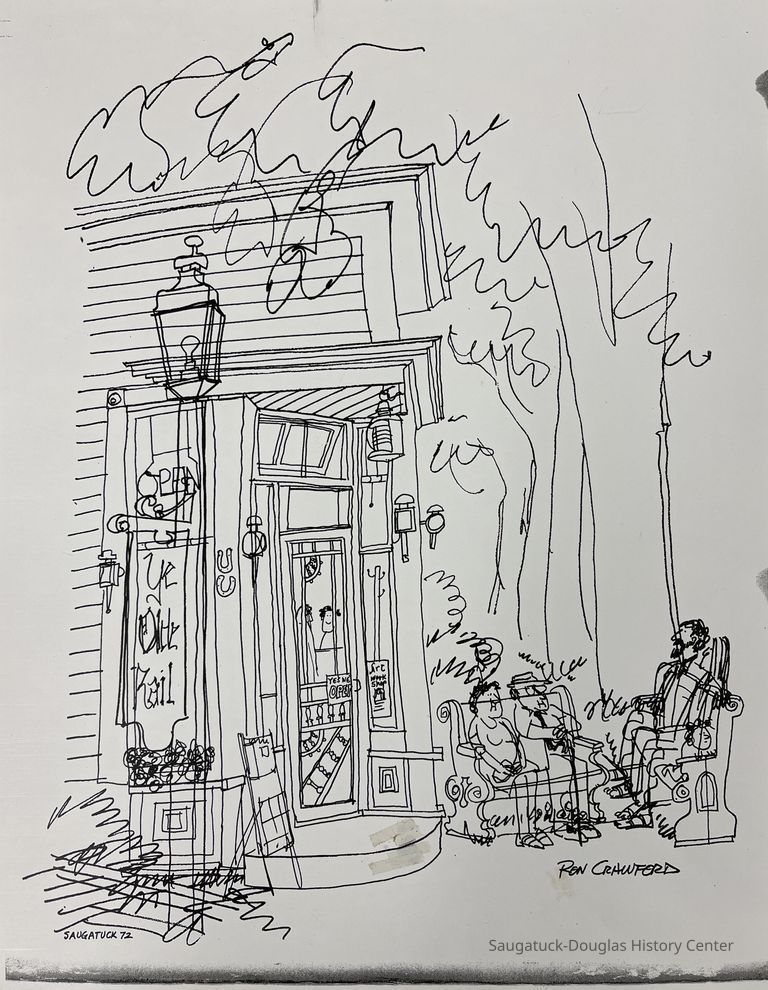 OPEN
Ye
Olde
Rail
YES WE
OPEN
Art
Work
Shop
RON CRAWFORD
SAUGATUCK 72
Saugatuck-Douglas History Center